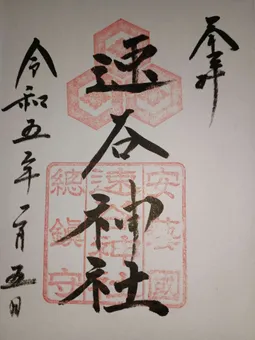 奉拝
速谷神社
安芸國
速谷神社
総鎮守
令和五年一月五日